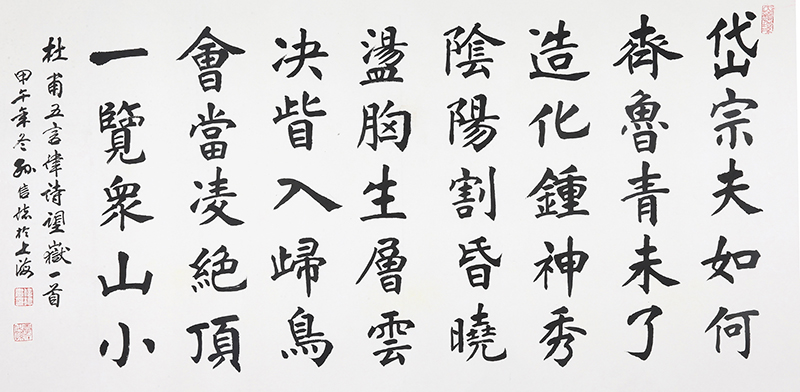 岱宗夫如何
齊魯青未了
造化鍾神秀
陰陽割昏曉
盪胸生層雲
決眥入歸鳥
會當凌絕頂
一覽衆山小
杜甫五言律诗望嶽一首
甲午年冬孙信德於上海